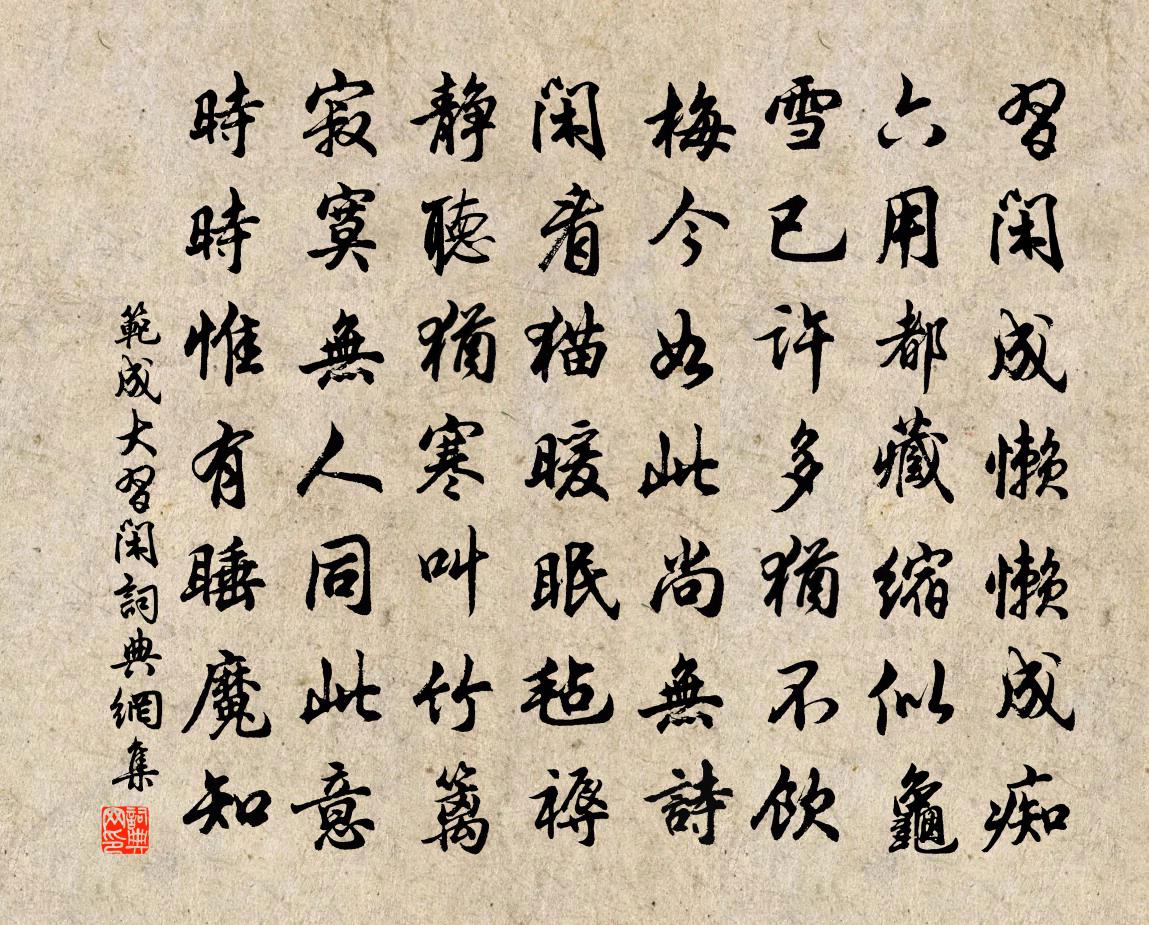 習閑成懶懶成痴
六用都藏縮似龜
雪已許多猶不飲
梅今如此尚無詩
閑看猫暖眠毡褥
靜聽猶寒叫竹篱
寂寞無人同此意
時時惟有睡魔知
範成大習閑詞典網集
詞典網印